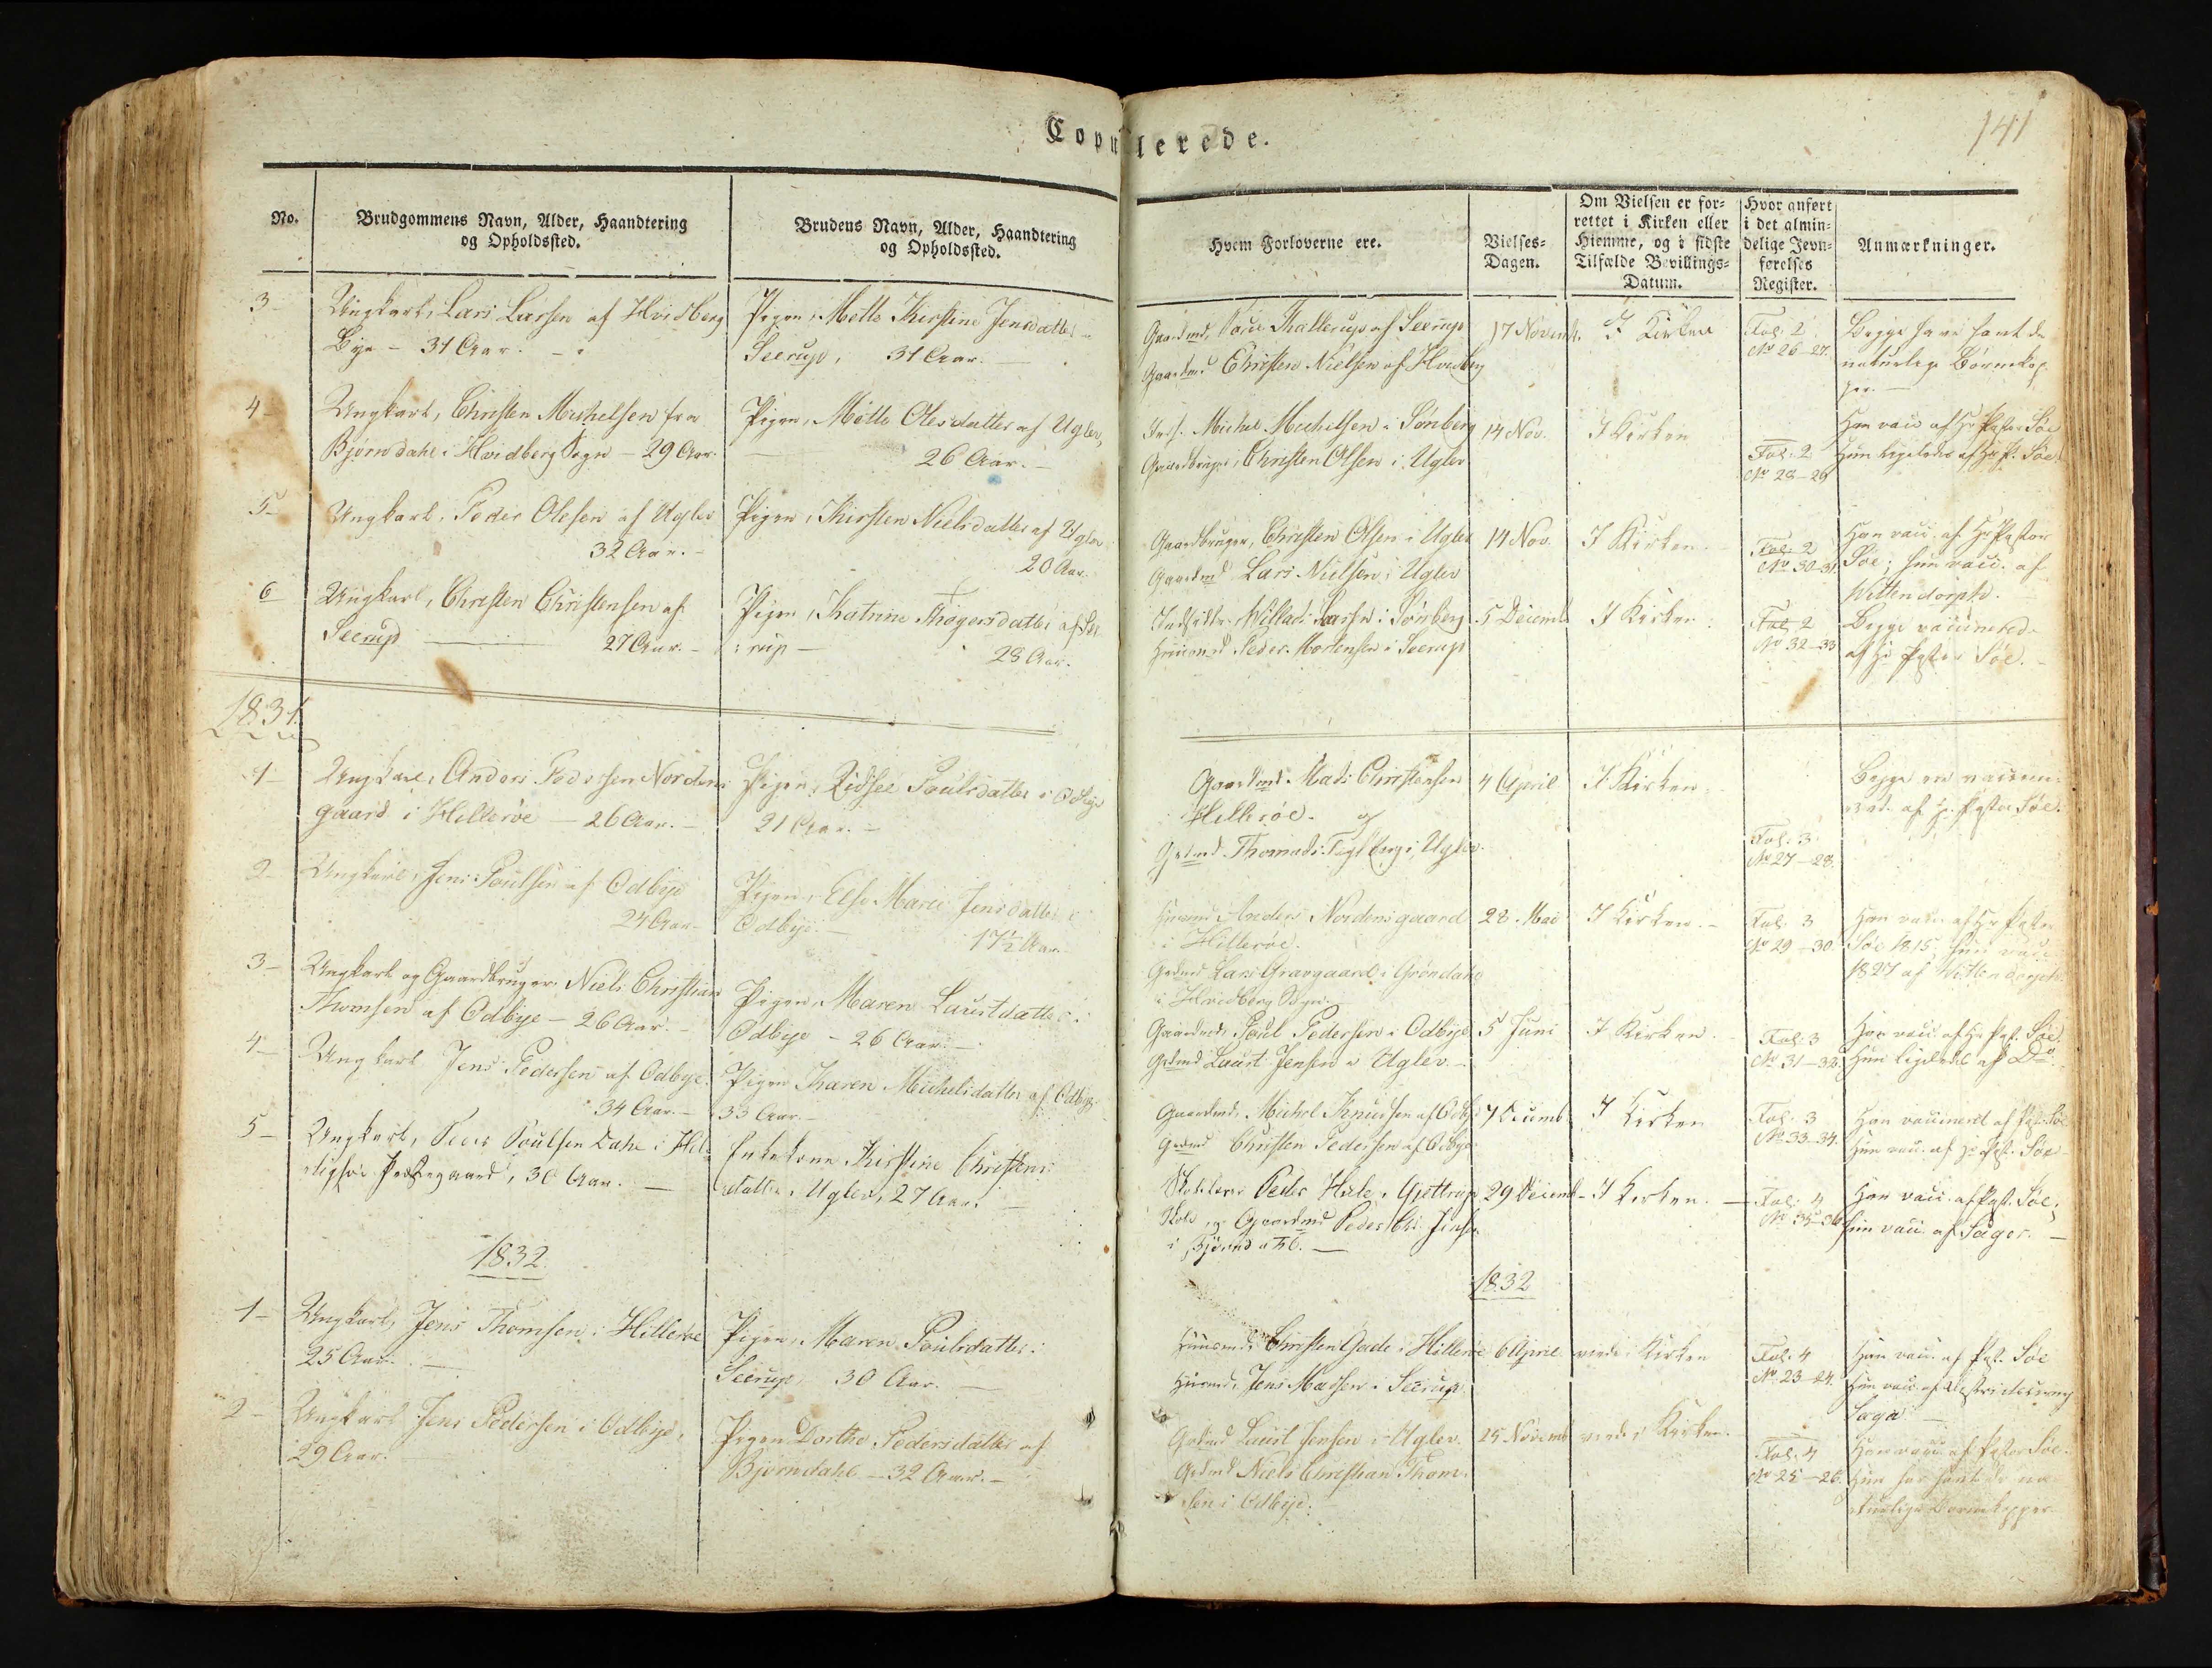 Copulerede.
141
No.
Brudgommens Navn, Alder, Haandtering
og Opholdssted.
Brudens Navn, Alder, Haandtering
og Opholdssted.
Hvem Forloverne ere.
Vielses-
Dagen.
Om Vielsen er for-
rettet i Kirken eller
Hiemme, og i sidste
Tilfælde Bevillings-
Datum.
Hvor anført
i det almin-
delige Jevn-
førelses
Register.
Anmærkninger.
3
Ungkarl, Lars Larsen af Hvidberg
Bye - 31 Aar.
Pigen, Mette Kirstine Jensdatter
Seerup, 31 Aar.
Gaardmd. Thøllerup af Seerup
Gaardmd Christen Nielsen af Hvidberg
17 Novemb.
I Kirken
Fol. 2
No 26-27.
Begge have havt de
naturlige Børnekop
per.
4
Ungkarl, Christen Michelsen fra
Bjørndahl i Hvidberg Sogn - 29 Aar.
Pigen, Mette Olesdatter af Uglev,
26 Aar.
Michel Michelsen i Sønberg
Gaardbruger, Christen Olsen i Uglev
14 Nov.
I Kirken
Fol: 2
No 28-29
Han vacc af Hr Pastor Søe
Hun ligeledes af Hr P. Søe.
5
Ungkarl, Peder Olesen af Uglev
32 Aar.
Pigen, Kirsten Nielsdatter af Uglev
20 Aar.
Gaardbruger, Christen Olsen i Uglev
Gaardmd Lars Nielsen i Uglev
14 Nov.
I Kirken.
Fol: 2
No 30-31.
Han vacc. af Hr Pastor
Søe; hun vacc. af
Wittendorph.
6
Ungkarl, Christen Christensen af
Seerup 27 Aar.
Pigen, Katrine Thøgersdatter af See
rup - 28 Aar.
Indsidder Willads Larsen i Sønberg
Huusmd Peder Mortensen i Seerup
5 Decemb
I Kirken
Fol 2
No 32-33
Begge vaccinerede
af Hr Pastor Søe.
1831.
1
Ungkarl, Anders Pedersen Nordens-
gaard i Hillerøe - 26 Aar.
Pigen, Zidsel Poulsdatter i Odbye
21 Aar.
Gaardmd. Mads Christensen
i Hillerøe. og
Grdmd Thomas Teglberg i Uglev.
4 April
I Kirken
Fol: 3
No 27-28.
Begge ere vaccine-
rede af Hr. Pastor Søe.
2
Ungkarl, Jens Poulsen af Odbye
24 Aar
Pigen, Else Marie Jensdatter i
Odbye. 17½ Aar.
Huusmd Anders Nordensgaard
i Hillerøe.
Grdmd Lars Gravgaard i Grøndahl
i Hvidberg Sogn.
28. Mai
I Kirken.
Fol. 3
No 29-30.
Han vacc. af Hr Pastor
Søe 1815, hun vacc.
1827 af Wittendorph.
3
Ungkarl og Gaardbruger Niels Christian
Thomsen af Odbye - 26 Aar.
Pigen, Maren Laustdatter i
Odbye - 26 Aar.
Gaardmd. Poul Pedersen i Odbye
Grdmd Laust Jensen i Uglev.
5 Juni
I Kirken.
Fol: 3
No 31-32.
Han vacc. af Hr Past. Søe.
Hun ligeledes af Do.
4
Ungkarl Jens Pedersen af Odbye.
34 Aar.
Pigen Karen Michelsdatter af Odbye
33 Aar.
Gaardmd. Michel Knudsen af Odbye
Grdmd Christen Pedersen af Odbye
7 Decemb.
I Kirken
Fol. 3
No 33-34.
Han vaccineret af Past. Søe
Hun vacc. af Hr. Past. Søe
5
Ungkarl, Peder Poulsen Dahl i Hel-
ligsøe Præstegaard, 30 Aar.
Enkekone Kirstine Christens-
datter, Uglev, 27 Aar.
Skolelærer Peder Hule, Gjettrup
Skole, og Gaardmd Peder Chr. Jensen
i Bjørndahl.
29 Decemb.
I Kirken.
Fol: 4
No 35-36
Han vacc. af Past. Søe;
hun vacc. af Sager.
1832.
1832
1
Ungkarl, Jens Thomsen i Hillerøe
25 Aar.
Pigen, Maren Poulsdatter i
Seerup, 30 Aar.
Huusmd, Christen Gade i Hillerøe
Huusmd, Jens Madsen i Seerup
6 April
viede i Kirken
Fol. 4
No 23-24.
Han vacc. af Past. Søe
Hun vacc. af
2
Ungkarl Jens Pedersen i Odbye,
29 Aar.
Pigen Dorthe Pedersdatter af
Bjørndahl - 32 Aar.
Grdmd Laust Jensen i Uglev.
Grdmd Niels Christian Thom-
sen i Odbye.
25 Novemb
viede i Kirken.
Fol. 4
No 25-26.
Han vacc. af Pastor Søe.
Hun har havt de na-
turlige Børnekopper.